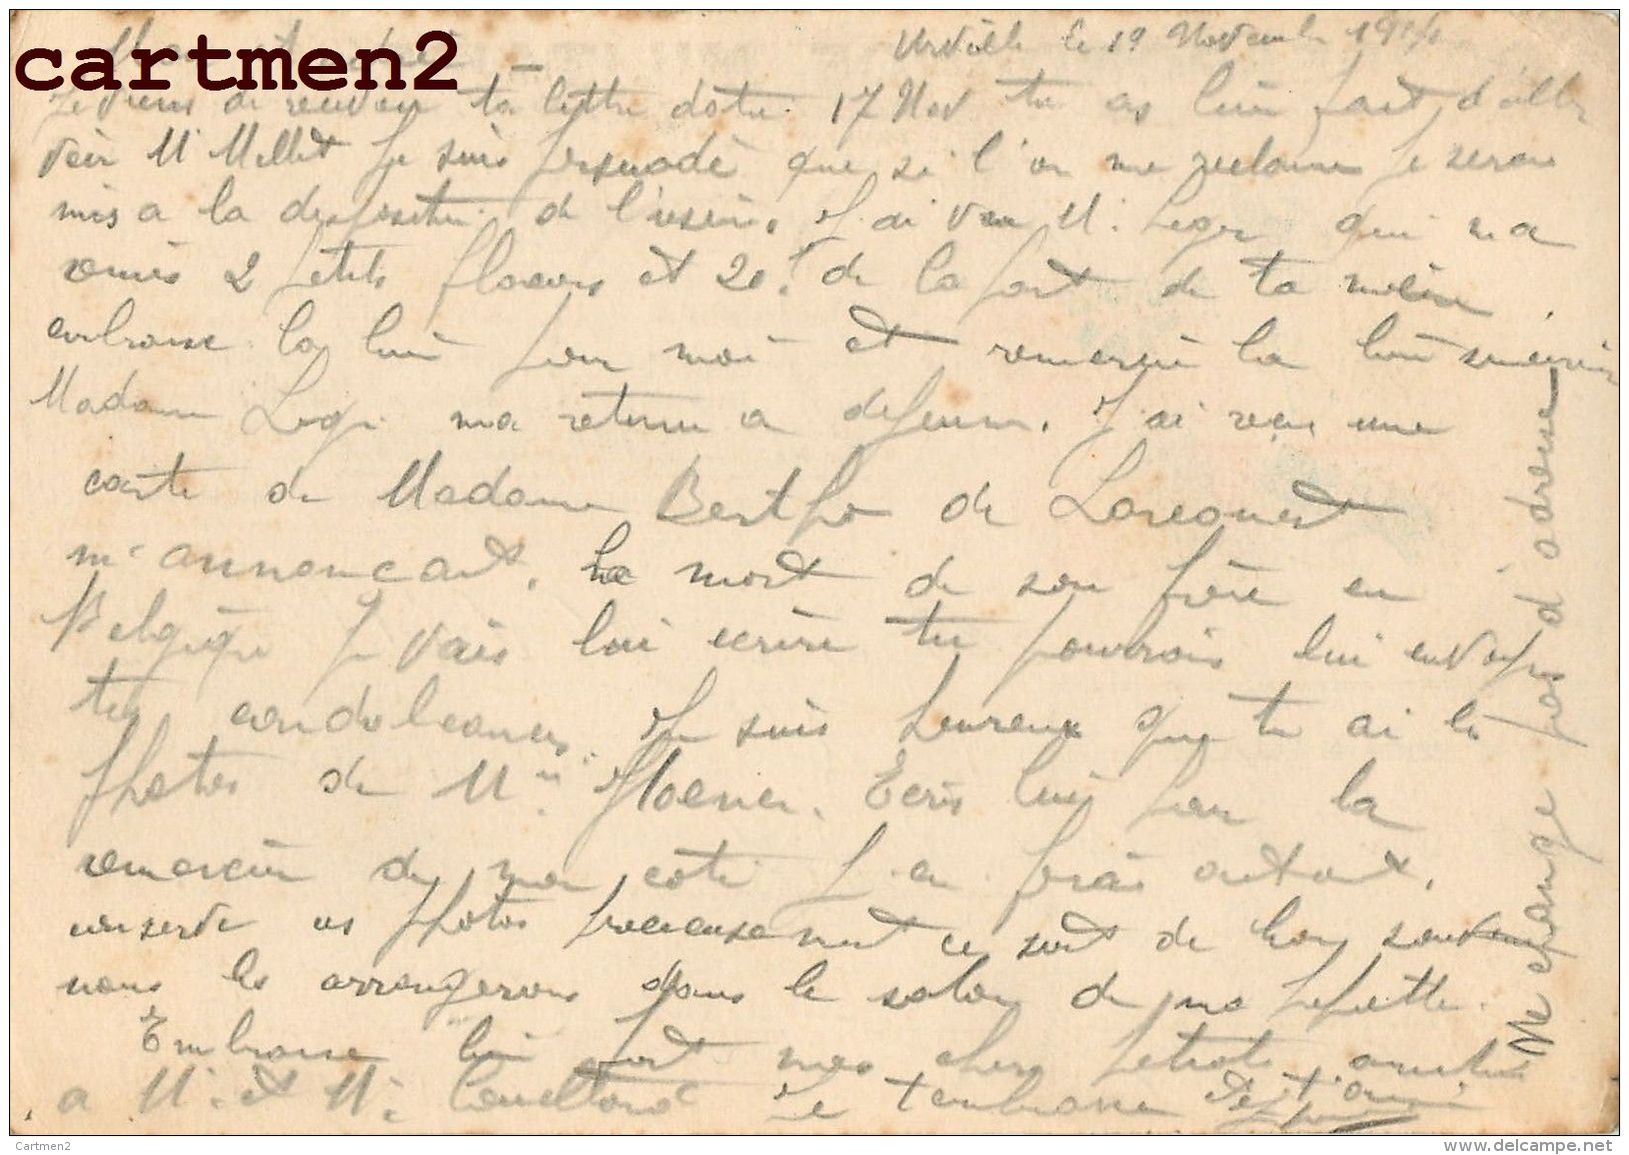 cartmen2
Urville le 19 Novembre 1914
Je viens de recevoir ta lettre datée 17 Nov tu as bien fait d'aller
voir M. Mellet je suis persuadé que si l'on me reclame je serai
mis a la disposition de l'usine. J'ai vu M. Leger qui m'a
remis 2 petits flacons et 20f de la part de ta mère.
embrasse la bien pour moi et remercie la bien
Madame Leger m'a retenu a dejeuner. J'ai reçu une
carte de Madame Bertho de
m'annonçant. la mort de son frère en
Belgique Je vais lui ecrire tu pourrais lui envoyer
tes condoleances. Je suis heureux que tu ai les
photos de Mme. Ecris lui pour la
remercier de mon coté j'en ferai autant.
conserve ces photos precieusement ce sont de bons souvenirs
nous les arrangerons dans le salon de ma Pepette.
Embrasse bien fort mes chers petiots amitiés
a M. et Me Je t'embrasse
Ne change pas d'adresse
Cartmen2
www.delcampe.net